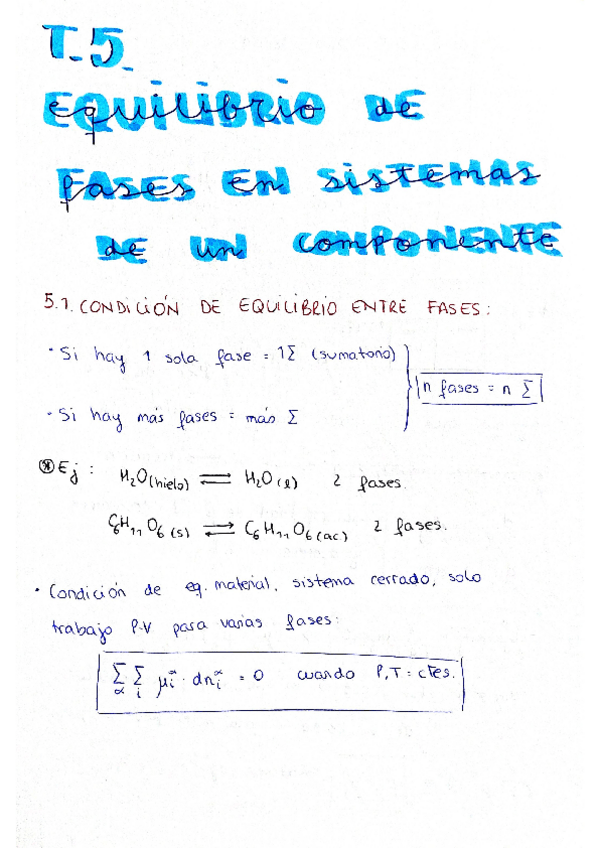 T.5.
EQUILIBRIO DE
FASES EN SISTEMAS
DE UN COMPONENTE
5.1. CONDICIÓN DE EQUILIBRIO ENTRE FASES:
· Si hay 1 sola fase = 1Σ (sumatorio)
n fases = n Σ
· Si hay más fases = más Σ
* Ej: H₂O(hielo) ⇌ H₂O(l) 2 fases.
C₆H₁₁O₆(s) ⇌ C₆H₁₁O₆(ac) 2 fases.
· Condición de eq. material, sistema cerrado, solo
trabajo P.V para varias fases:
Σ_α Σ_i μ_i^α · dn_i^α = 0 cuando P,T = ctes.